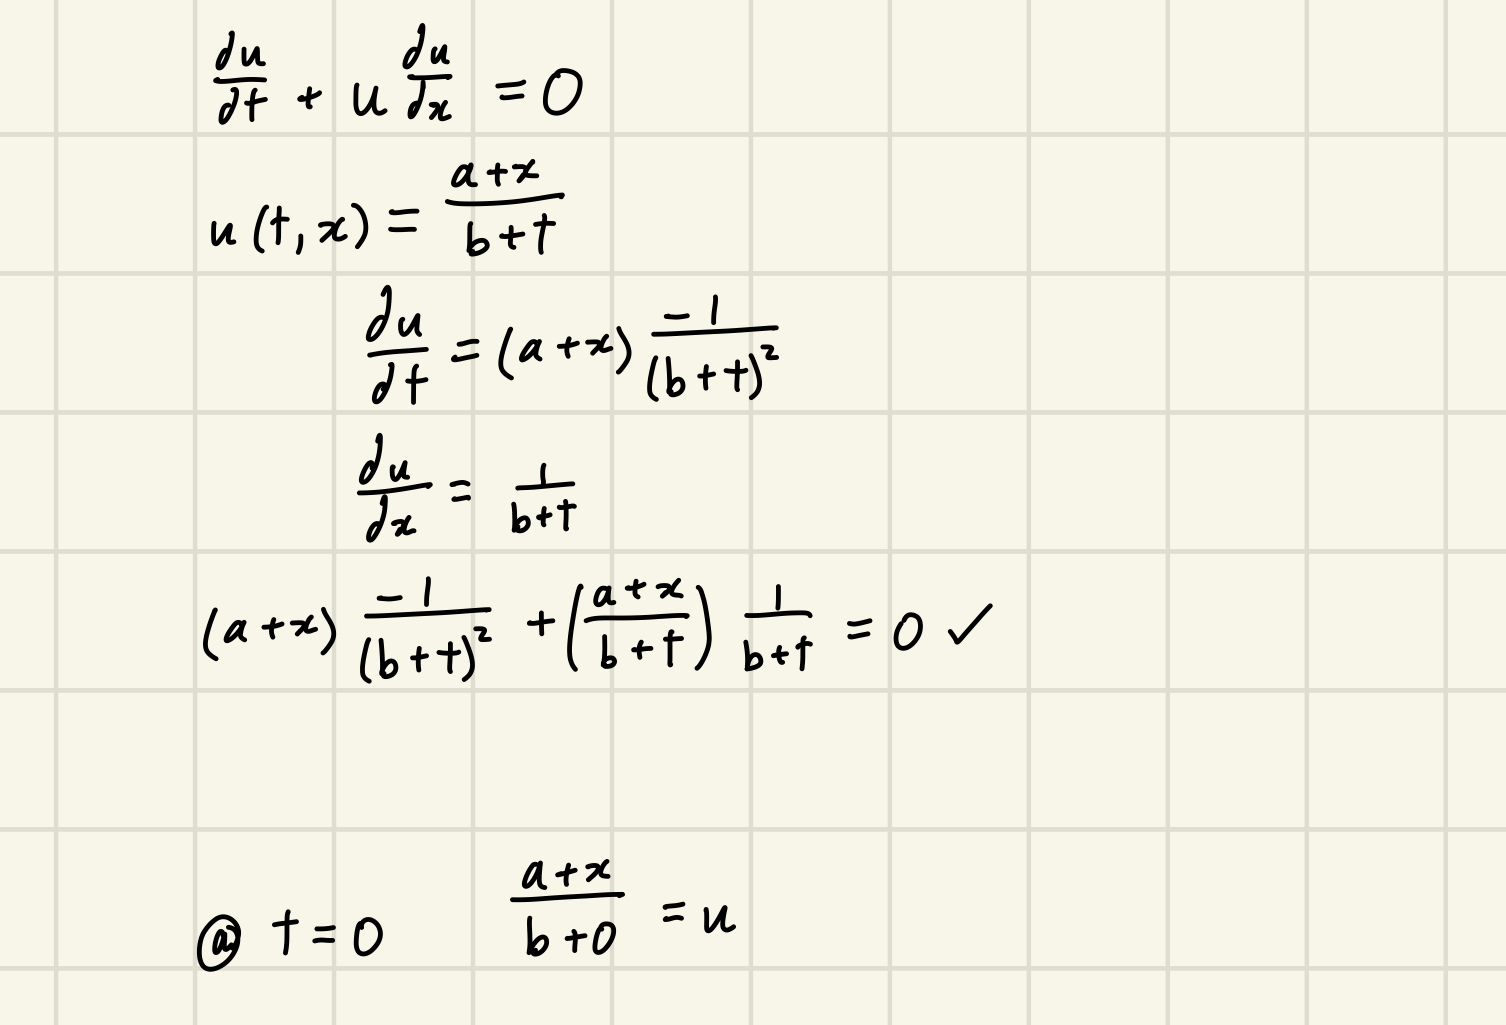 ∂u/∂t + u ∂u/∂x = 0
u(t,x) = (a+x)/(b+t)
∂u/∂t = (a+x) -1/(b+t)²
∂u/∂x = 1/(b+t)
(a+x) -1/(b+t)² + ((a+x)/(b+t)) 1/(b+t) = 0 ✓
@ t=0 (a+x)/(b+0) = u